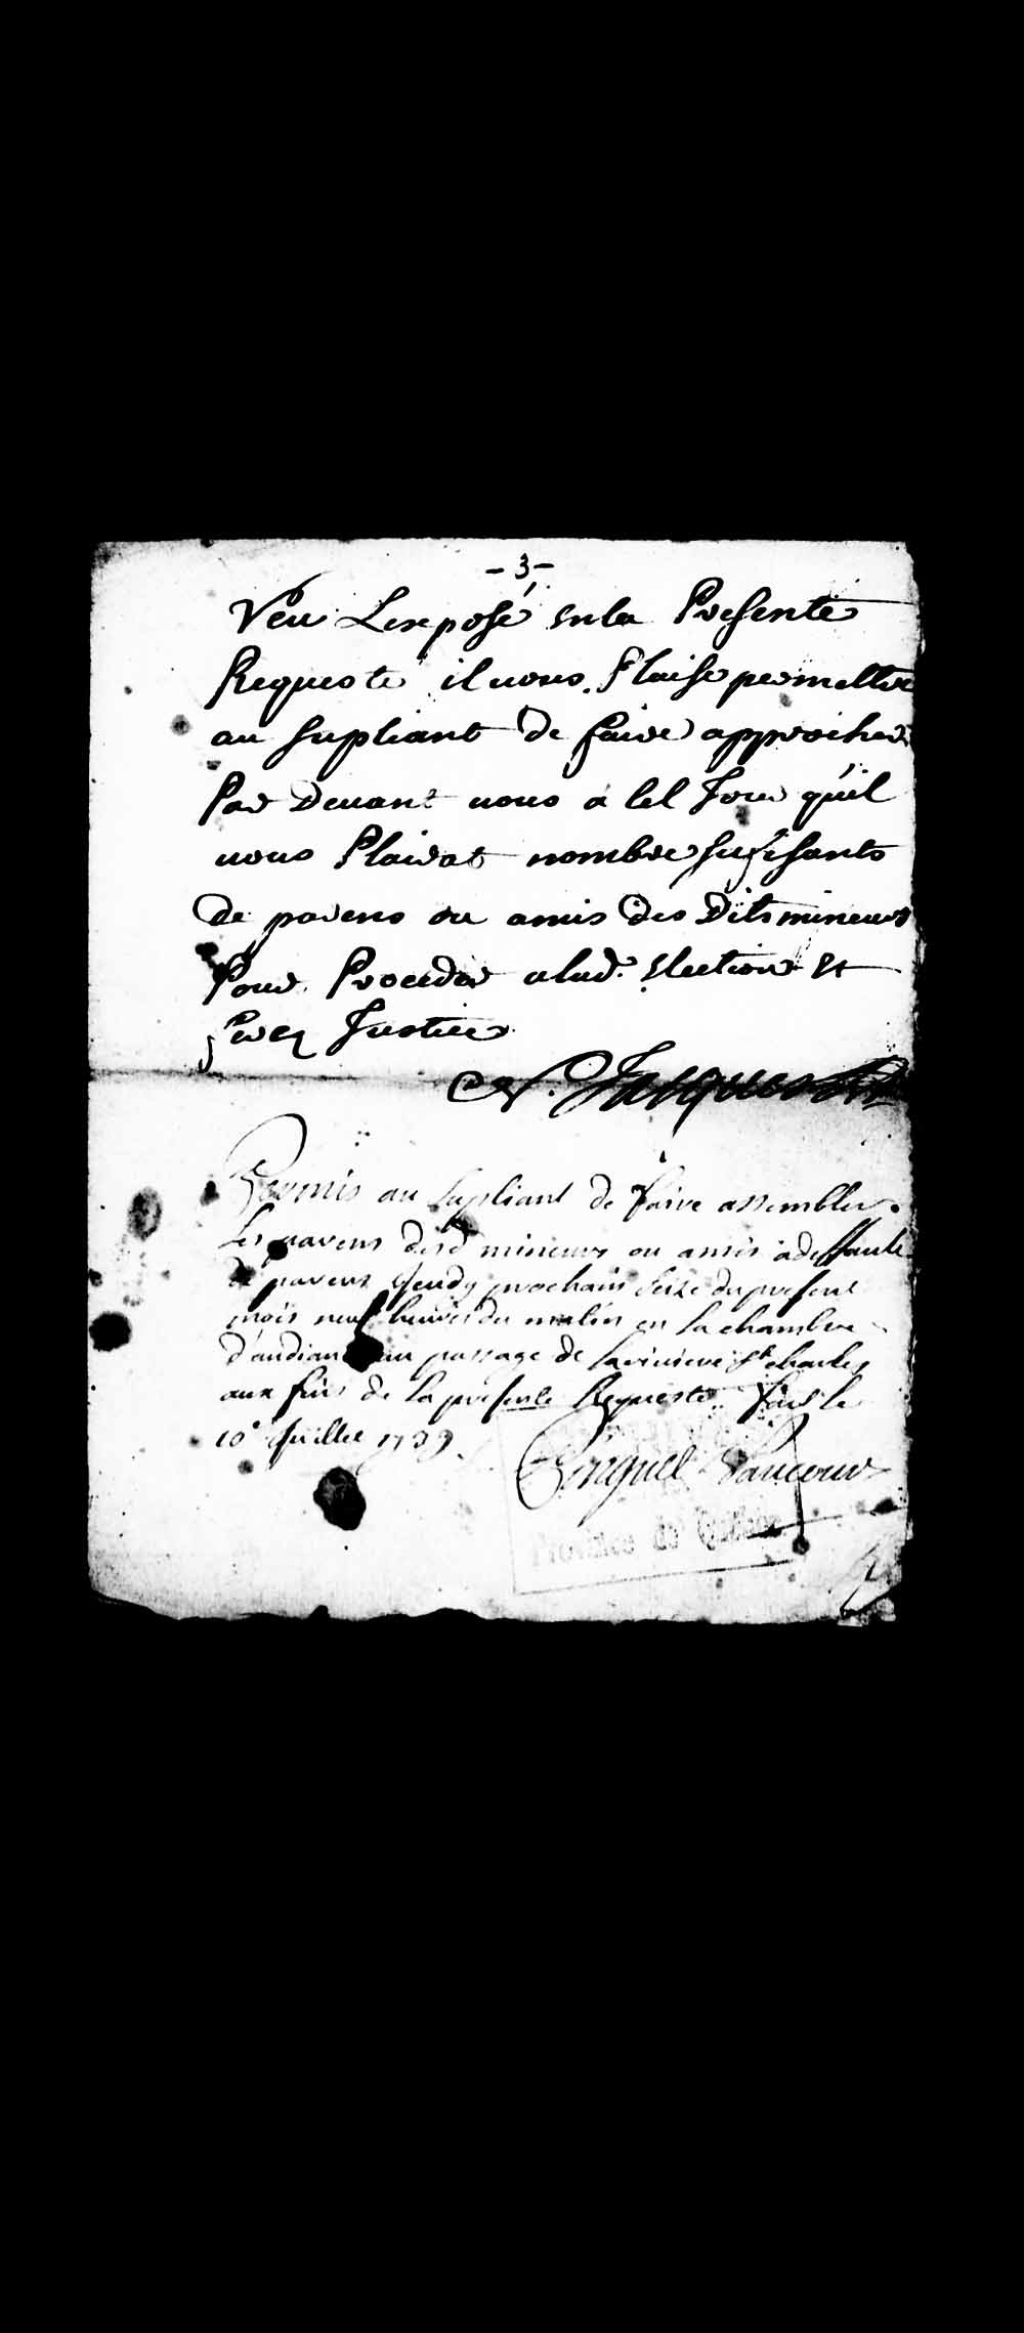 - 3 -
Veu Lexposé enla Presente
Requeste il vous Plaise permettre
au supliant de faire approcher
Par Devant vous a tel Jour qu'il
vous Plairat nombre sufisants
de parens ou amis des Dits mineurs
Pour Proceder a lad. Election Et
Ferez Justice
Permis au supliant de faire assembler
Les parens desd mineurs ou amis adeffaute
de parens Jeudy prochain seize du present
mois neuf heures du matin en la chambre
d'audiance au passage de la riviere St charles
aux fins de la presente Requeste. fait le
10e Juillet 1739.